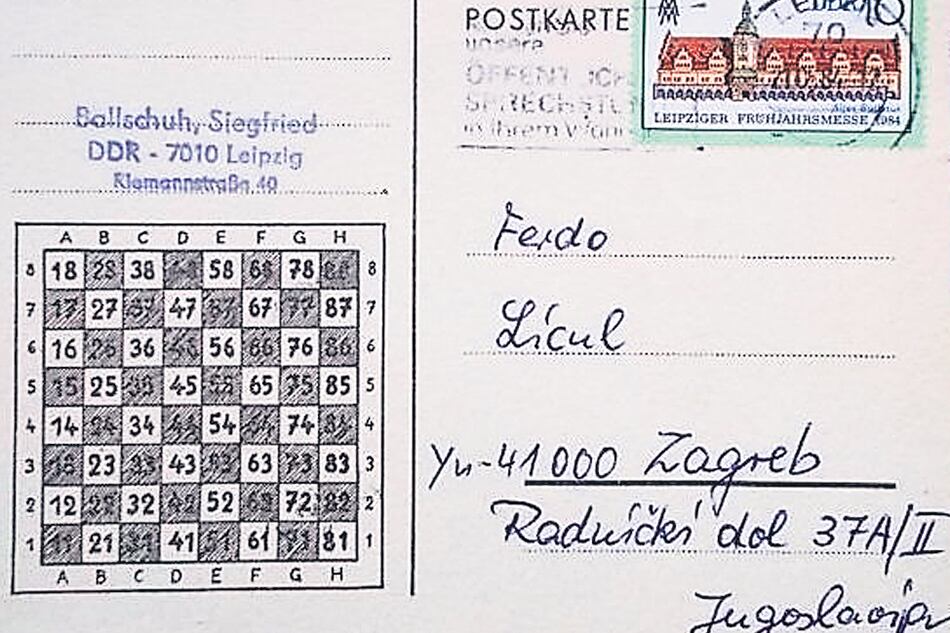 Ballschuh, Siegfried
DDR - 7010 Leipzig
Riemannstraße 40
A B C D E F G H
8 18 28 38 48 58 68 78 88 8
7 17 27 37 47 57 67 77 87 7
6 16 26 36 46 56 66 76 86 6
5 15 25 35 45 55 65 75 85 5
4 14 24 34 44 54 64 74 84 4
3 13 23 33 43 53 63 73 83 3
2 12 22 32 42 52 62 72 82 2
1 11 21 31 41 51 61 71 81 1
A B C D E F G H
POSTKARTE
unsere
10
70
LEIPZIGER FRÜHJAHRSMESSE 1984
Ferdo
Licul
Yu-41000 Zagreb
Radnički dol 37A/II
Jugoslavija